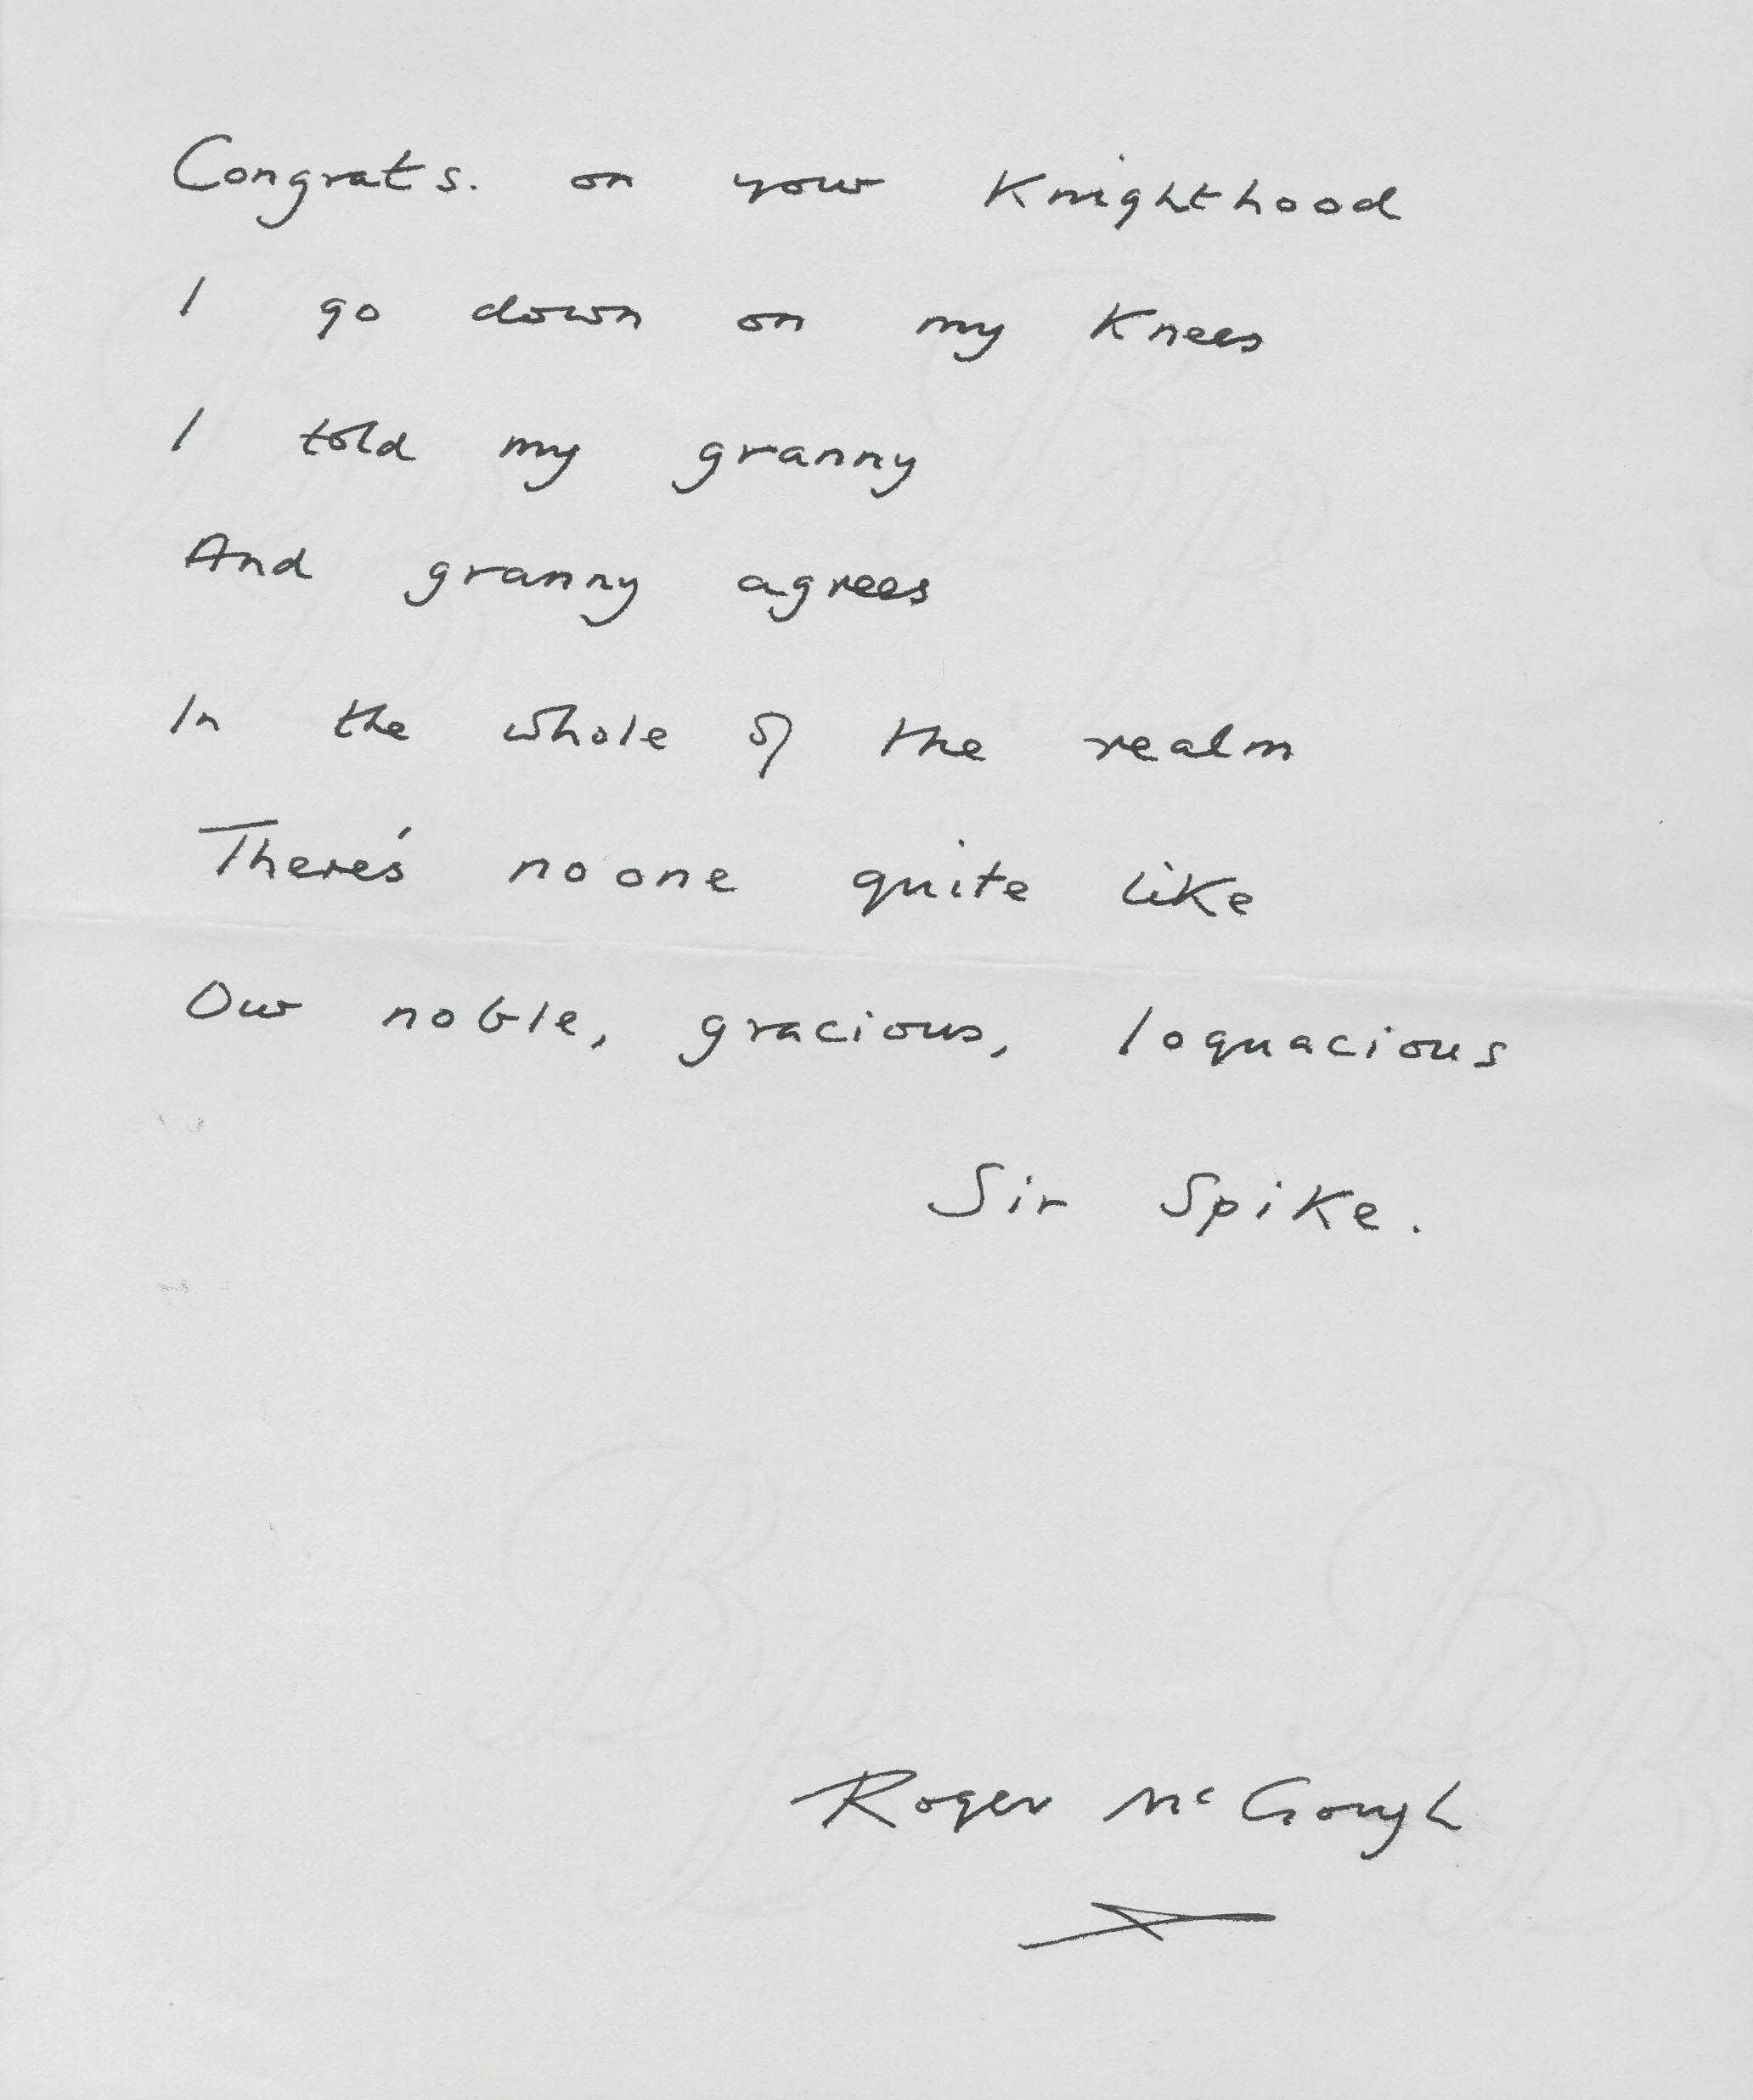 Congrats. on your Knighthood
I go down on my Knees
I told my granny
And granny agrees
In the whole of the realm
There's no one quite like
Our noble, gracious, loquacious
Sir Spike.
Roger McGough